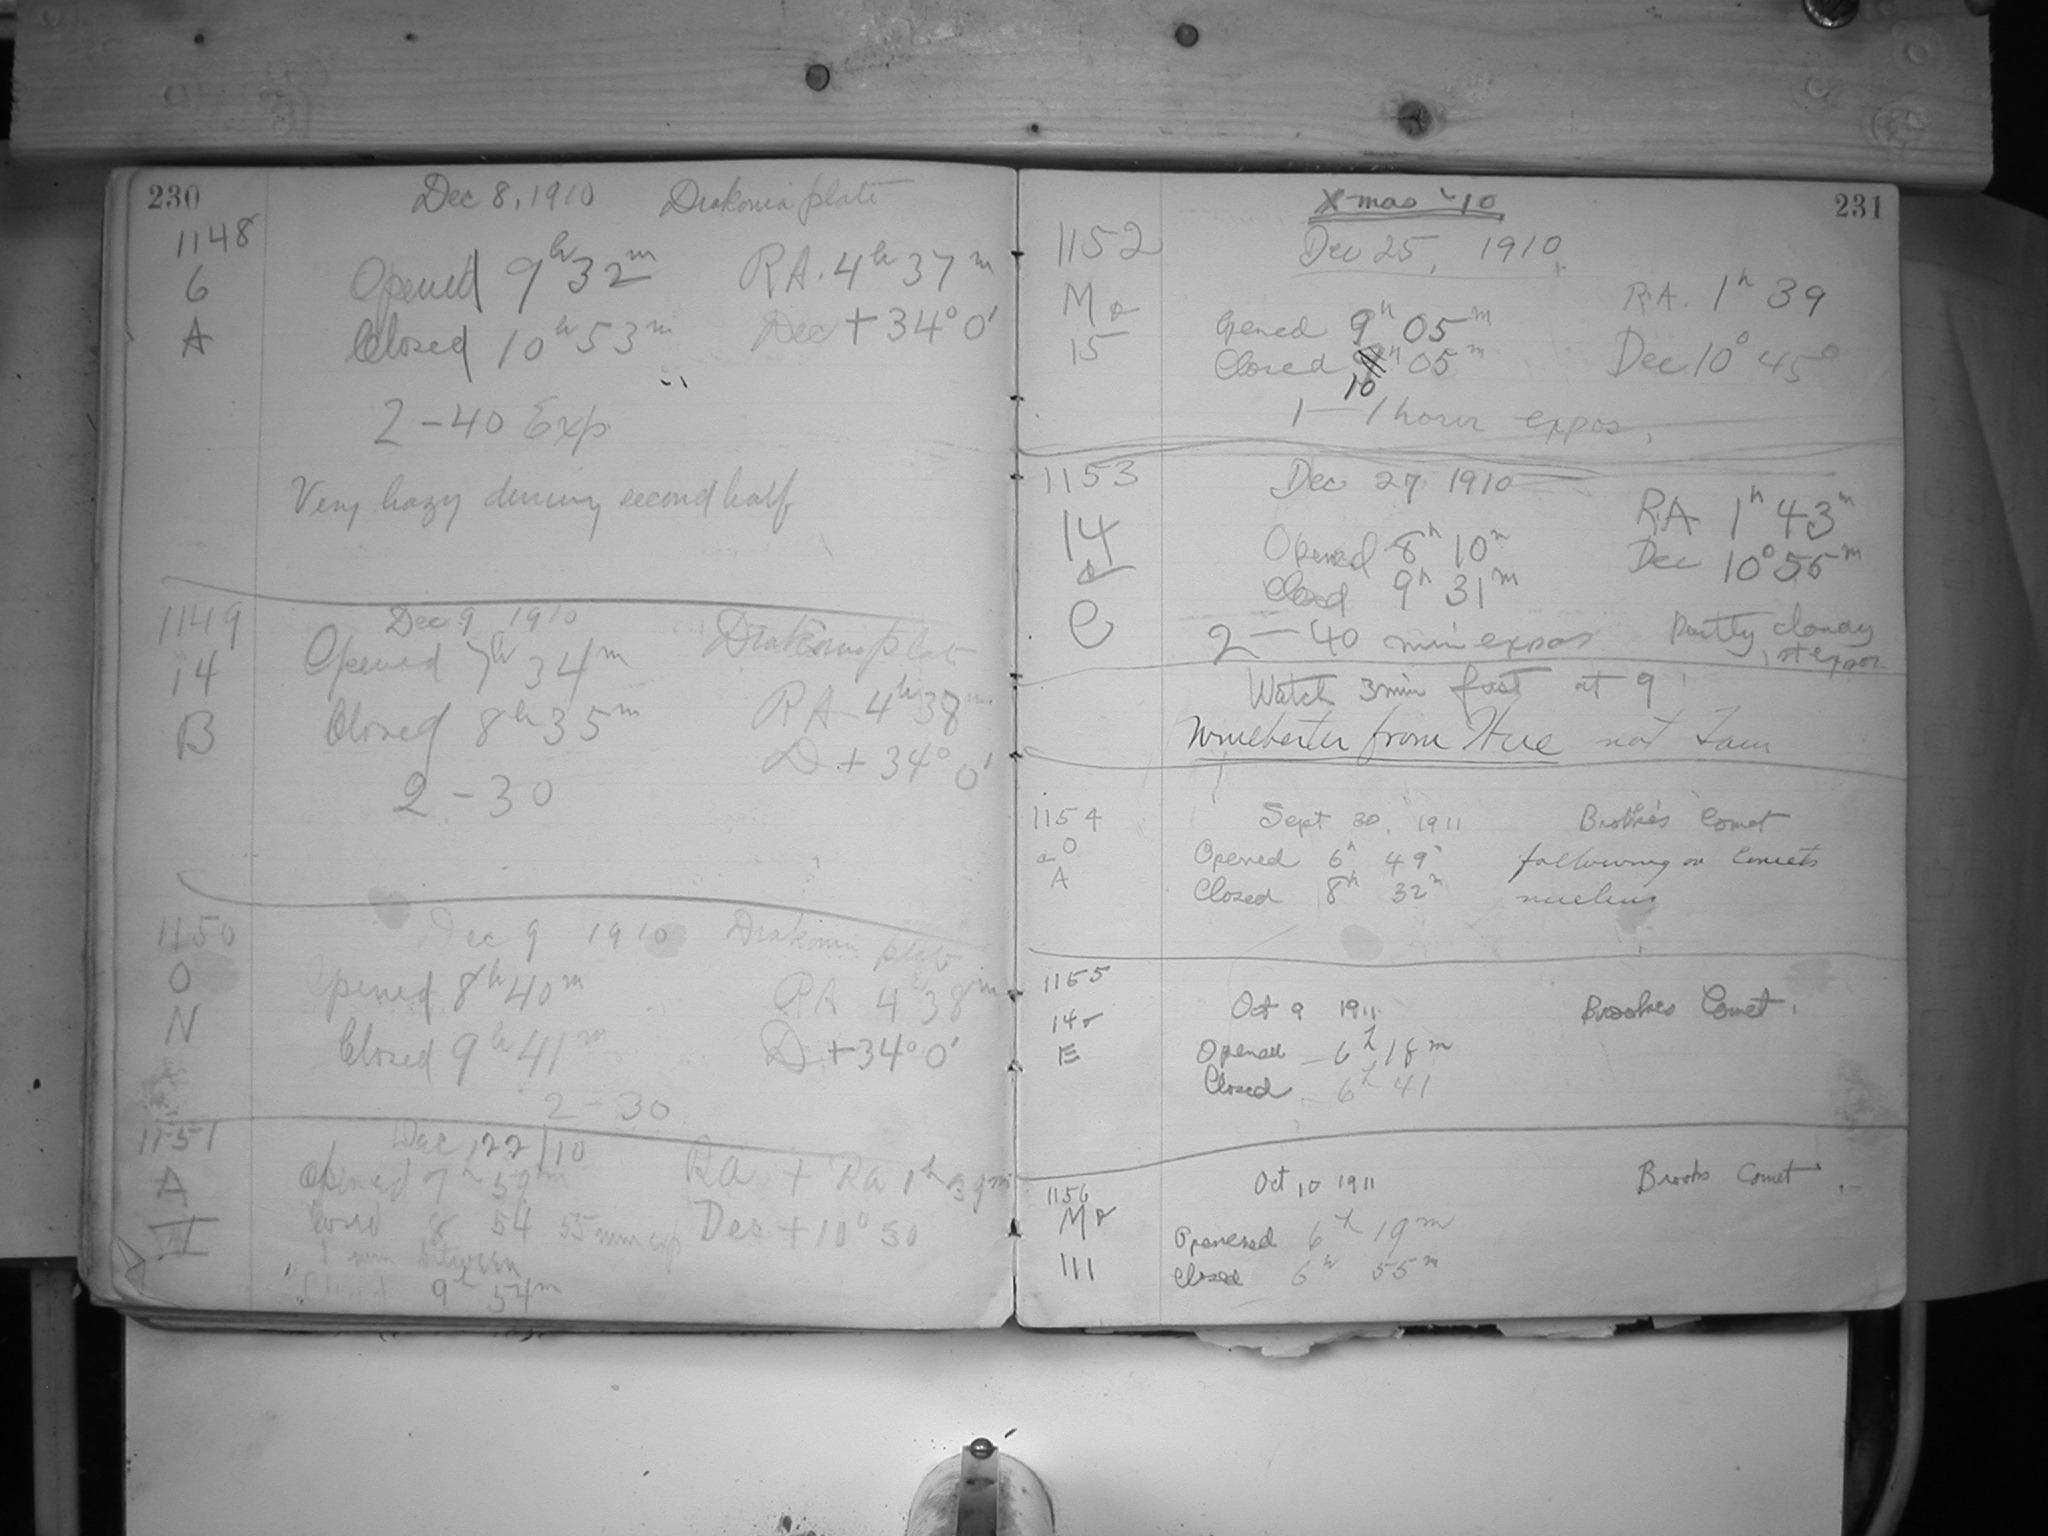 230
Dec 8, 1910 Drakonia plate
1148
6
A
Opened 9h 32m RA. 4h 37m
Closed 10h 53m Dec + 34° 0'
2 - 40 Exp
Very hazy during second half
1149
14
B
Dec 9 1910 Drakonia plate
Opened 7h 34m
Closed 8h 35m RA 4h 38m
D + 34° 0'
2 - 30
1150
O
N
Dec 9 1910 Drakonia plate
Opened 8h 40m RA 4h 38m
Closed 9h 41m D + 34° 0'
2 - 30
1151
A
VI
Dec 22/10
Opened 7h 59m Ra + Ra 1h 39m
Closed 8 54 55 min exp Dec + 10° 50
1 min between
Closed 9h 54m
231
X-mas '10
1152
15
Dec 25, 1910
RA. 1h 39
Opened 9h 05m
Closed 10h 05m Dec 10° 45°
1 - 1 hour expos.
1153
14
C
Dec 27 1910
RA 1h 43m
Opened 8h 10m Dec 10° 56m
Closed 9h 31m
2 - 40 min expos Partly cloudy
1st expos
Watch 3 min fast at 9
from Hue not
1154
O
A
Sept 30, 1911 Brooke's Comet
Opened 6h 49m following on Comets
Closed 8h 32m nucleus
1155
14
E
Oct 9 1911 Brookes Comet.
Opened - 6h 18m
Closed - 6h 41
1156
111
Oct 10 1911 Brooks Comet
Openened 6h 19m
Closed 6h 55m